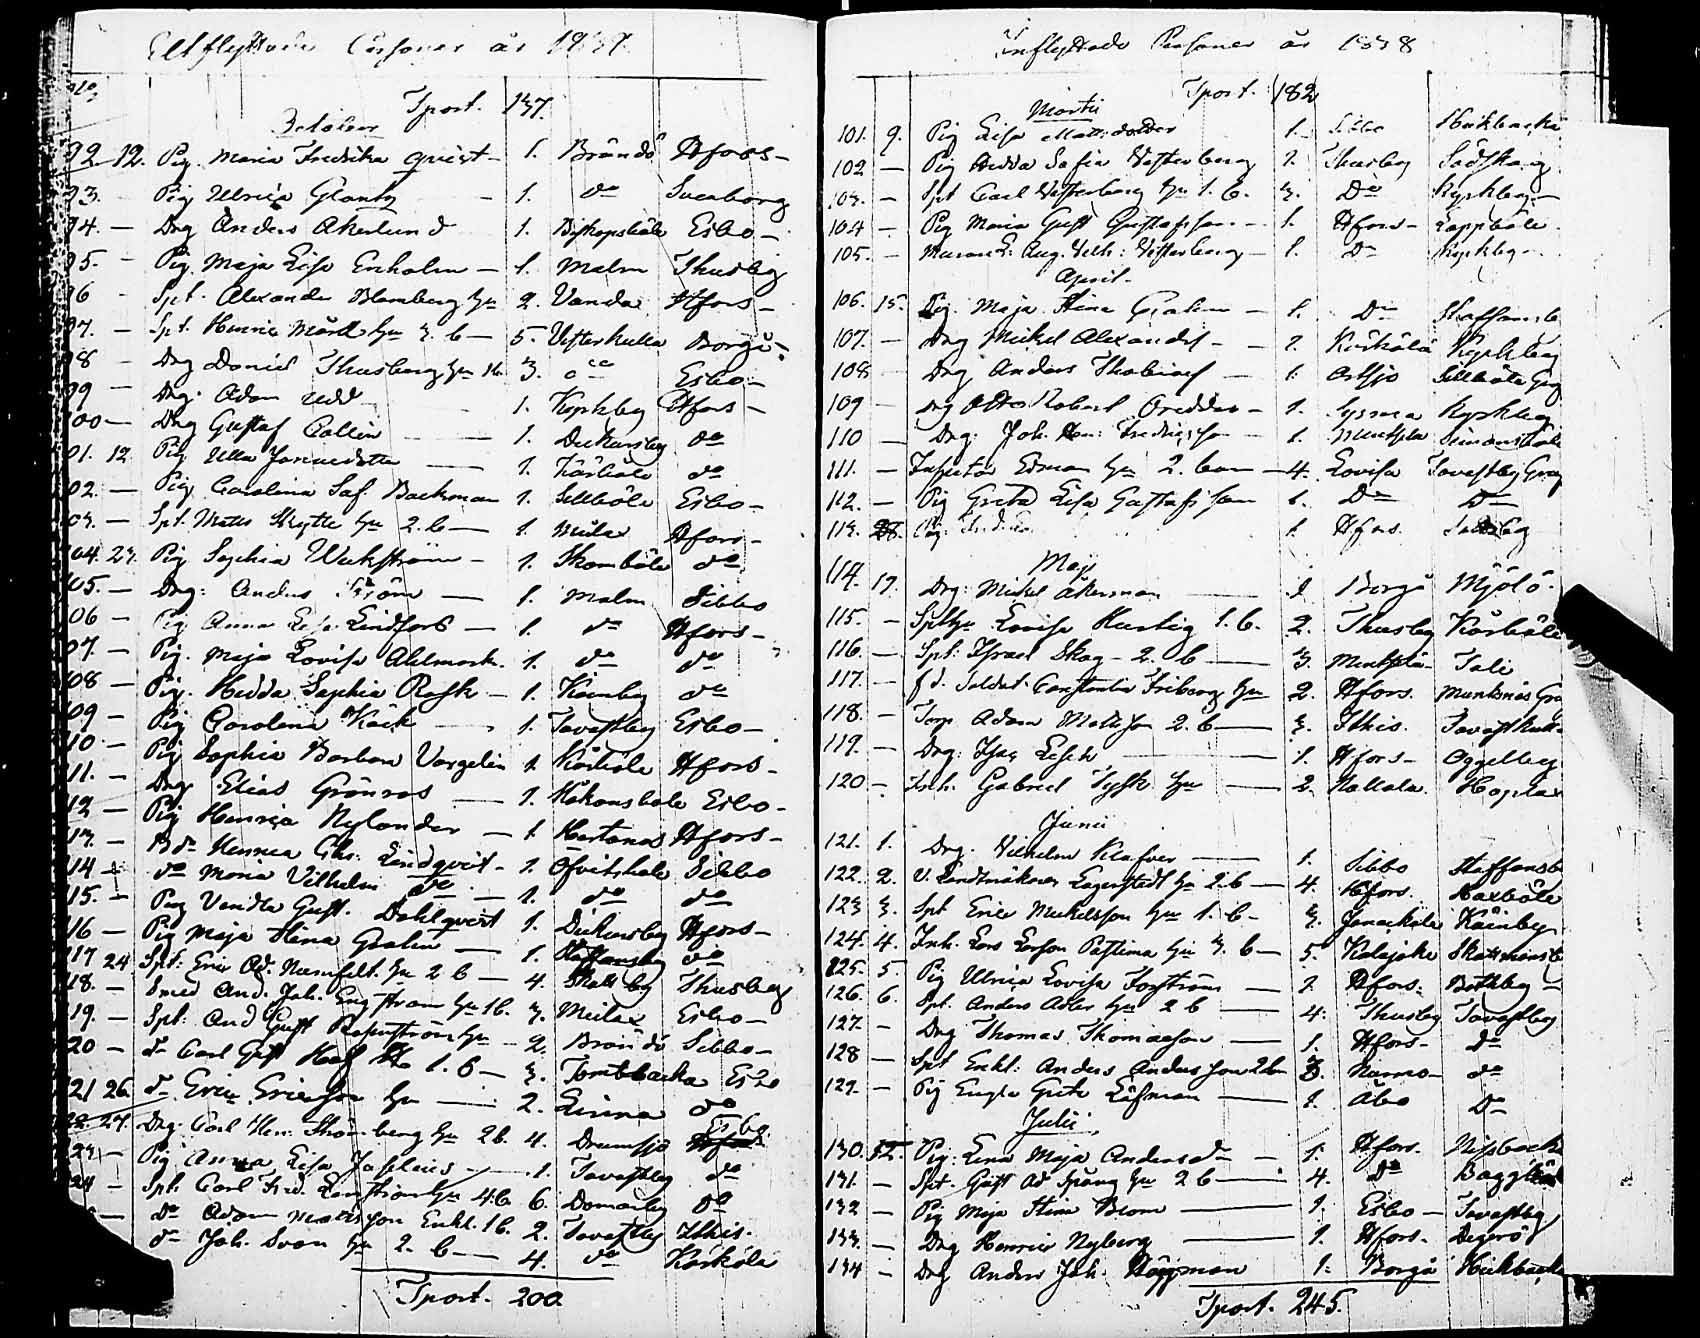 Utflyttade Personer år 1837.
No
Tport. 137.
October
92 12. Pig. Maria Fredrika Qvist 1. Brändö Hfors
93. Pig Ulrica Glantz 1. do Sveaborg
94. Drg Anders Åkerlund 1. Biskopsböle Esbo
95. Pig. Maja Lisa Enholm 1. Malm Thusby
96 Spt. Alexander Blomberg hu 2. Vanda Hfors
97. Spt. Henric Mård hu 3. b 5. Vesterkulla Borgå
98 Drg Daniel Thusberg hu 1b. 3. do Esbo
99 Drg. Adam Udd 1. Kyrkby Hfors
100 Drg Gustaf Collin 1. Dickursby do
01. 12 Pig Ulla Jarnedotter 1. Kårböle do
02. Pig. Carolina Sof. Backman 1. Sillböle Esbo
03. Spt. Matts Skytte hu 2. b 1. Mielax Hfors
104. 23. Pig Sophia Wickström 1. Skomböle do
105. Drg: Anders Ström 1. Malm Sibbo
06 Pig Anna Lisa Lindfors 1. do Hfors
07. Pig. Maja Lovisa Ahlmark. 1. do do
108 Pig. Hedda Sophia Rosk 1. Kåinby do
109 Pig Carolina Käck 1. Tavastby Esbo
10. Pig Sophia Barbara Vargelin 1. Kårböle Hfors
11. Drg Elias Grönroos 1. Håkansböle Esbo
12 Pig Henrica Nylander 1. Hertonäs Hfors
13. Bdr Henrica Chr. Lindqvist 1. Öfvitsböle Sibbo
14 do Maria Vilhelm do 1. do do
15. Pig Vendla Gust. Dahlqvist 1. Dickursby Hfors
16 Pig Maja Stina Grahn 1. Staffansby do
117 24 Spt: Eric Ad. Numfelt hu 2 b 4. Skattby Thusby
18. Smed And. Joh. Engström hu 1b. 3. Meilax Esbo
19. Spt: And Gust Rosenström hu 2. Brändö Sibbo
20 do Carl Gust 1. b 3. Tomtbacka Esbo
121 26. do Eric Ericsson hu 2. Linna do
22. 27. Drg. Carl Hen: Strömberg hu 2b. 4. Drumsjö Esbo
23 Pig Anna Lisa Joseleus 1. Tavastby do
24 Spt. Carl Fred. Lönström hu 4b 6. Domarby do
do Adam Matsson Enkl. 1b. 2. Tavastby Ithis.
do Joh. Svan hu 2. b 4. do Kärkölä
Tport. 200.
Inflyttade Personer år 1838
Tport. 182
Martii
101. 9. Pig Lisa Mattsdotter 1. Sibbo Hickbacka
102 Pig Hedda Sofia Vesterberg 1. Thusby Sadskog
103. Spt Carl Vesterberg hu 1. b. 3. Do Kyrkby
104 Pig Maria Gust Gustafsson 1. Hfors Lappböle
105. Aug. Vilh: Vesterberg 1. Do Kyrkby
April.
106. 15. Pig. Maja Stina Grahn 1. Do Staffansb
107. Drg Mickel Alexanders 1. Kärkölä Kyrkby
108 Drg Anders Thobiae 1. Ortsjo Sillböle
109 Drg Otto Robert Oredder 1. Sysma Kyrkby
110 Drg. Joh. Hen: Fredricsson 1. Mentsele Simonsböle
111. Inspector Edman hu 2. barn 4. Lovisa Tavastby
112. Pig Greta Lisa Gustafsson 1. Do Do
113. 28. Pig. Fredrika 1. Hfors.
Maj
114. 17. Drg: Mickel Åkerman 1 Borgå Mjölö
115. Spthu Lovisa Hurtig 1. b. 2. Thusby Kårböle
116. Spt: Israel Skog 2. b 3. Mentsele Tali
117. f d. Soldat. Constantin Friberg hu 2. Hfors. Munksnäs
118. Torp Adam Mattsson 2. b 3. Ithis. Tavast
119. Drg: Isac Lisch 1. Hfors Oggelby
120 Inh. Gabriel Tysk hu 2. Hattala Hoplax
Junii
121. 1. Drg. Vilhelm Klafver 1. Sibbo Staffansb
122. 2. V. Landtmätaren Lagerstedt hu 2 b 4. Hfors. Haxböle
123 3. Spt Eric Mickelsson hu 1. b 3. Janackala Kåinby
124. 4. Inh. Lars Larsson Pastuna hu 3. b 5. Kalajoki Skattmansb
125. 5. Pig Ulrica Lovisa Forström 1. Hfors. Botby
126. 6. Spt. Anders Adler hu 2 b 4. Thusby Tavastby
127. Drg Thomas Thomasson 1. Hfors do
128 Spt Enkl: Anders Andersson 2b 3. Nurmo do
129. Pig Engla Greta Löfman 1. Åbo Do
Julii
130. 12. Pig: Lena Maja Andersdr 1. Hfors. Nissback
131. Spt. Gust Ad Spång hu 2 b 4. Do Baggböle
132 Pig Maja Stina Blom 1. Esbo Tavastby
133. Drg Henric Nyberg 1. Hfors. Degerö
134 Drg Anders Joh. Häggman 1. Borgå Hickbacka
Tport. 245.